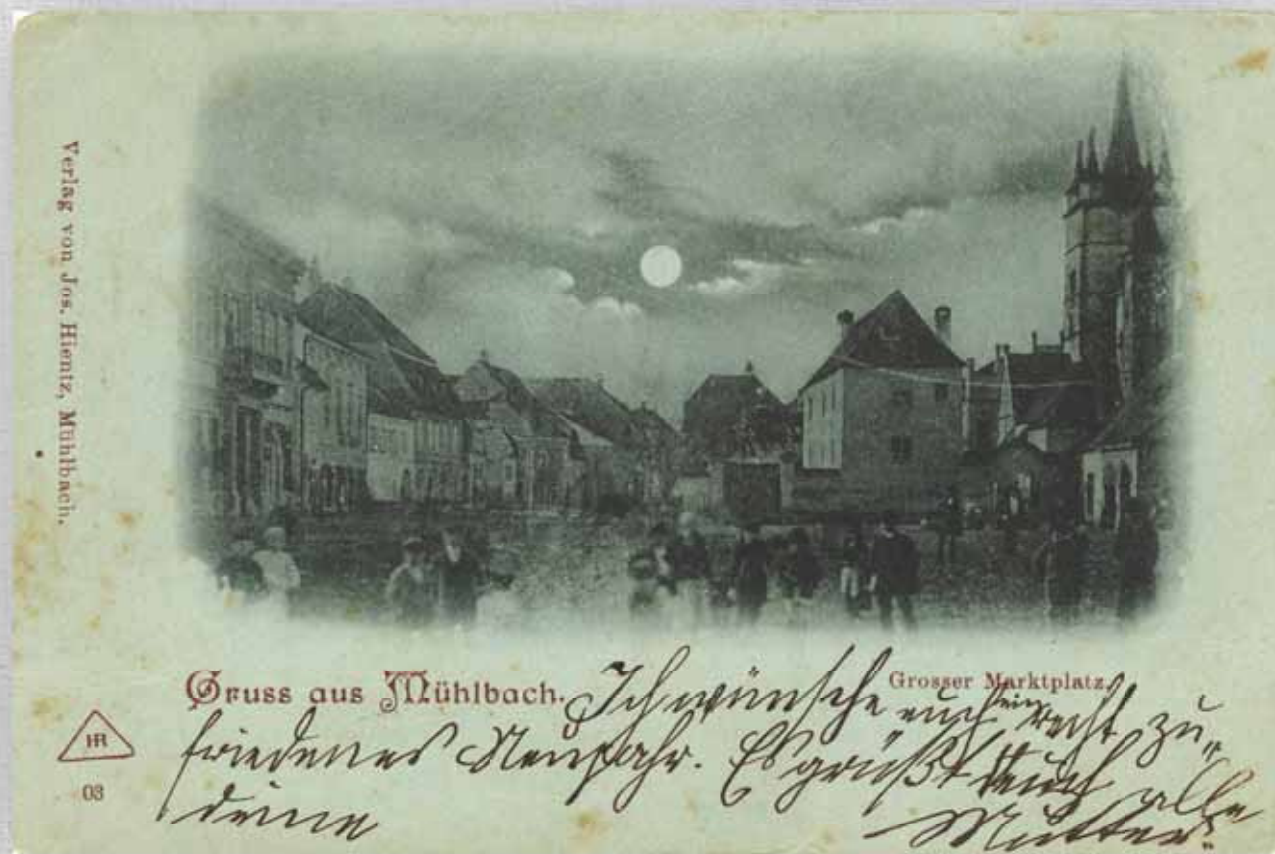 Verlag von Jos. Hientz, Mühlbach.
Gruss aus Mühlbach.
Grosser Marktplatz.
Ich wünsche euch ein recht zu„
friedenes Neujahr. Es grüßt euch alle
deine Mutter.
HR
03